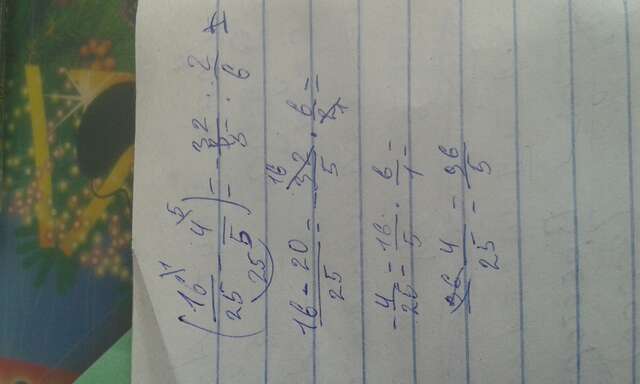 (16/25 - 4/5) = - 32/5 : 2/6 =
25
16 - 20/25 - 32/5 · 6/2 =
16 1
- 4/25 - 16/5 · 6/1 =
4/25 - 96/5